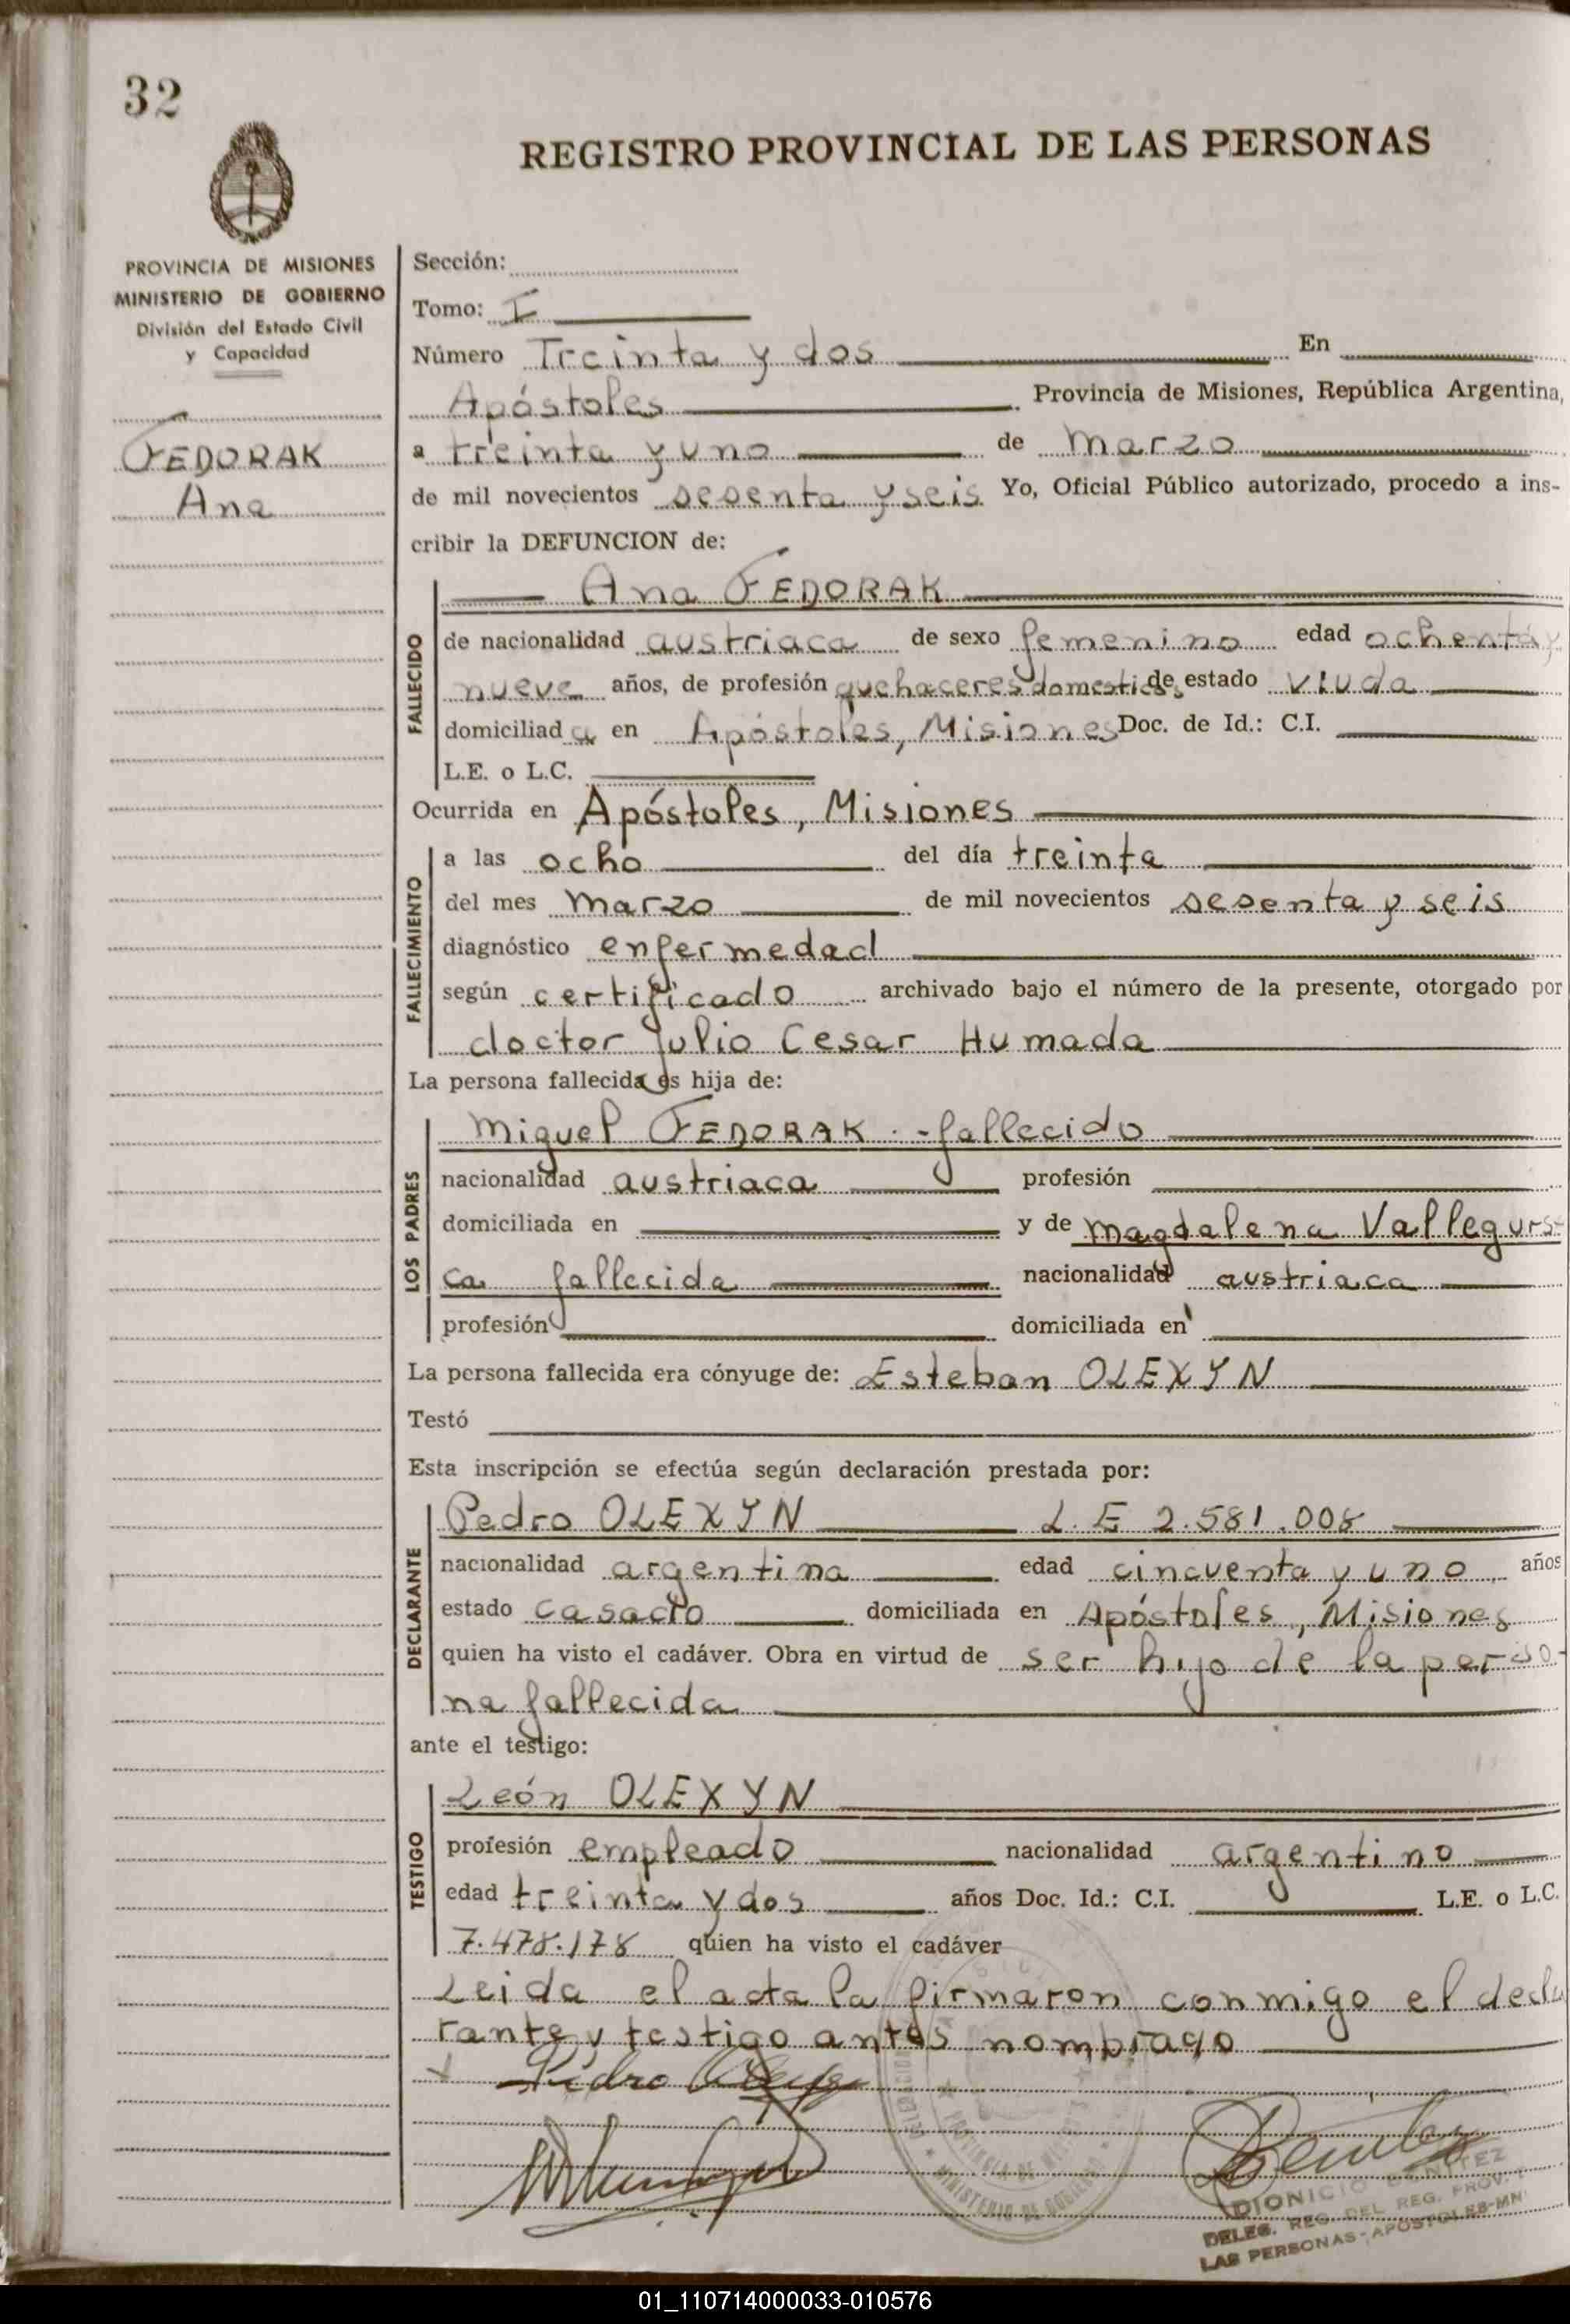 32
REGISTRO PROVINCIAL DE LAS PERSONAS
PROVINCIA DE MISIONES
MINISTERIO DE GOBIERNO
División del Estado Civil
y Capacidad
FEDORAK
Ana
Sección:
Tomo: I
Número Treinta y dos En
Apóstoles Provincia de Misiones, República Argentina,
a treinta y uno de marzo
de mil novecientos sesenta y seis Yo, Oficial Público autorizado, procedo a ins-
cribir la DEFUNCION de:
FALLECIDO
Ana FEDORAK
de nacionalidad austriaca de sexo femenino edad ochenta y
nueve años, de profesión quehaceres domesticos de estado viuda
domiciliad a en Apóstoles, Misiones Doc. de Id.: C.I.
L.E. o L.C.
Ocurrida en Apóstoles, Misiones
FALLECIMIENTO
a las ocho del día treinta
del mes marzo de mil novecientos sesenta y seis
diagnóstico enfermedad
según certificado archivado bajo el número de la presente, otorgado por
doctor Julio Cesar Humada
La persona fallecida es hija de:
LOS PADRES
Miguel FEDORAK - fallecido
nacionalidad austriaca profesión
domiciliada en y de Magdalena Vallegurs-
ca fallecida nacionalidad austriaca
profesión domiciliada en
La persona fallecida era cónyuge de: Esteban OLEXYN
Testó
Esta inscripción se efectúa según declaración prestada por:
DECLARANTE
Pedro OLEXYN L.E 2.581.008
nacionalidad argentina edad cincuenta y uno años
estado casado domiciliada en Apóstoles, Misiones
quien ha visto el cadáver. Obra en virtud de ser hijo de la perso-
na fallecida
ante el testigo:
TESTIGO
León OLEXYN
profesión empleado nacionalidad argentino
edad treinta y dos años Doc. Id.: C.I. L.E. o L.C.
7.478.178 quien ha visto el cadáver
Leida el acta la firmaron conmigo el decla
rante y testigo antes nombrado
Pedro
PROVINCIA DE MISIONES
MINISTERIO DE GOBIERNO
DIONICIO BENITEZ
DELEG. REG. DEL REG. PROV.
LAS PERSONAS-APOSTOLES-MN
01_110714000033-010576